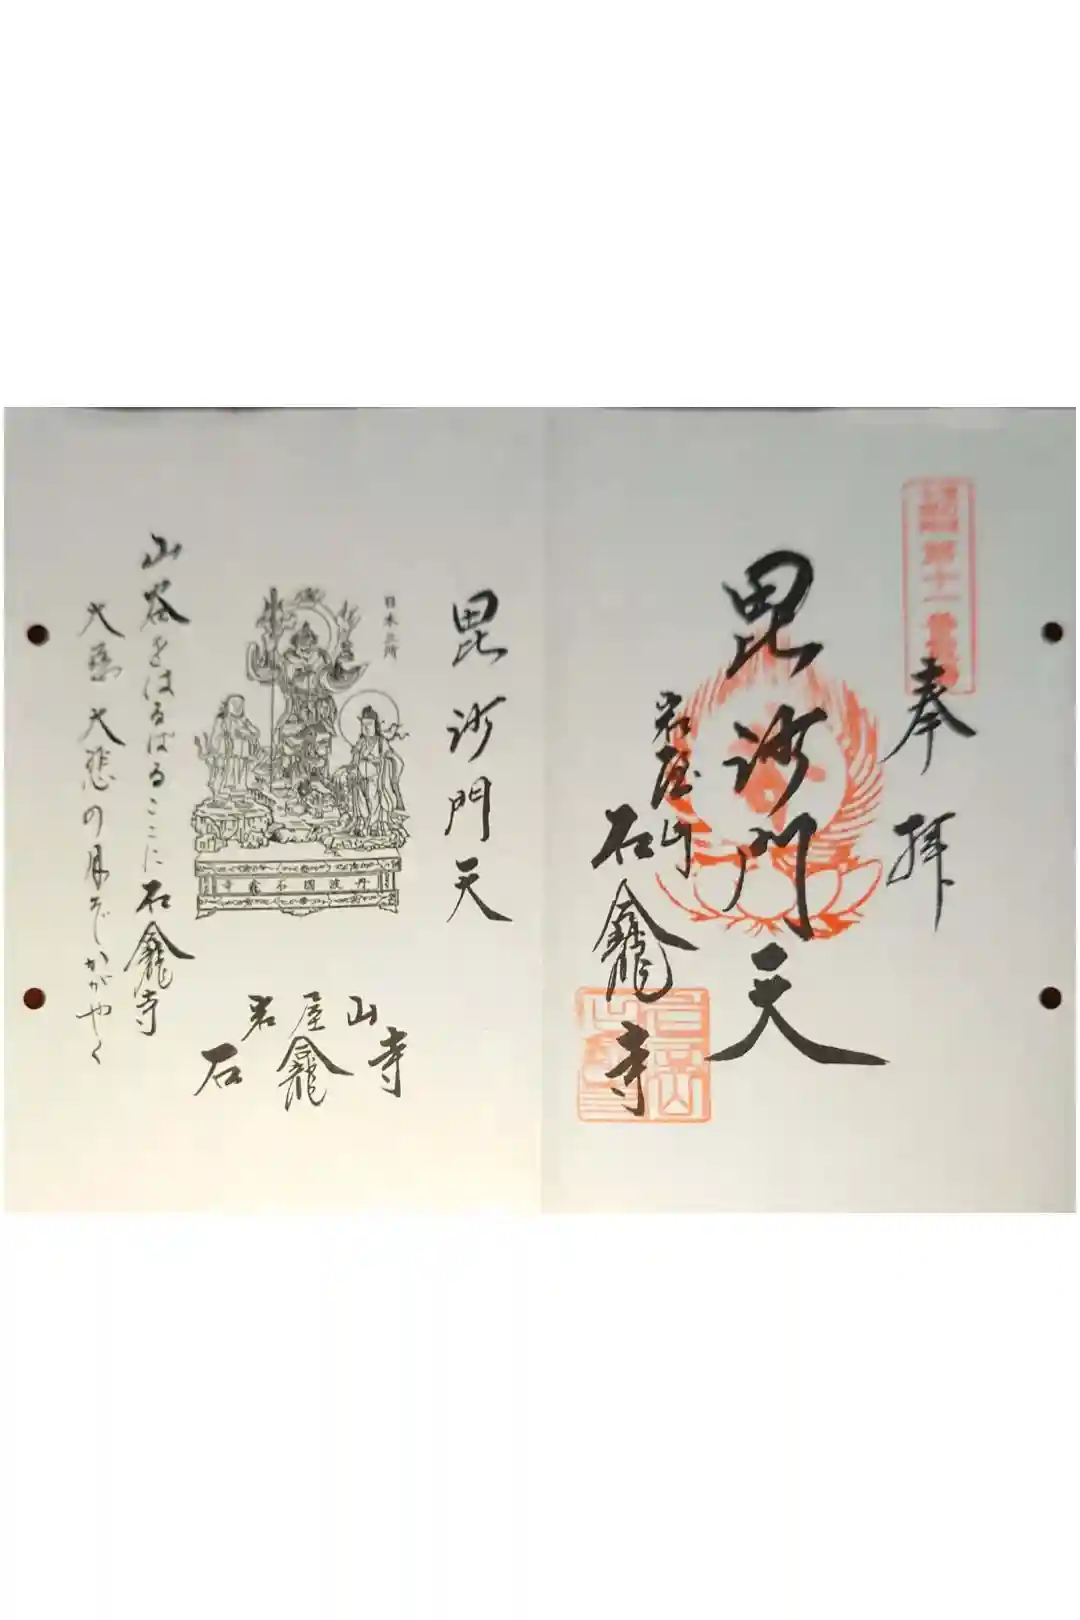 奉拝
毘沙門天
岩屋山
石龕寺
第十一番
毘沙門天
日本三所
丹波國石龕寺
山谷をはるばるここに石龕寺
大慈大悲の月ぞかがやく
岩屋山
石龕寺